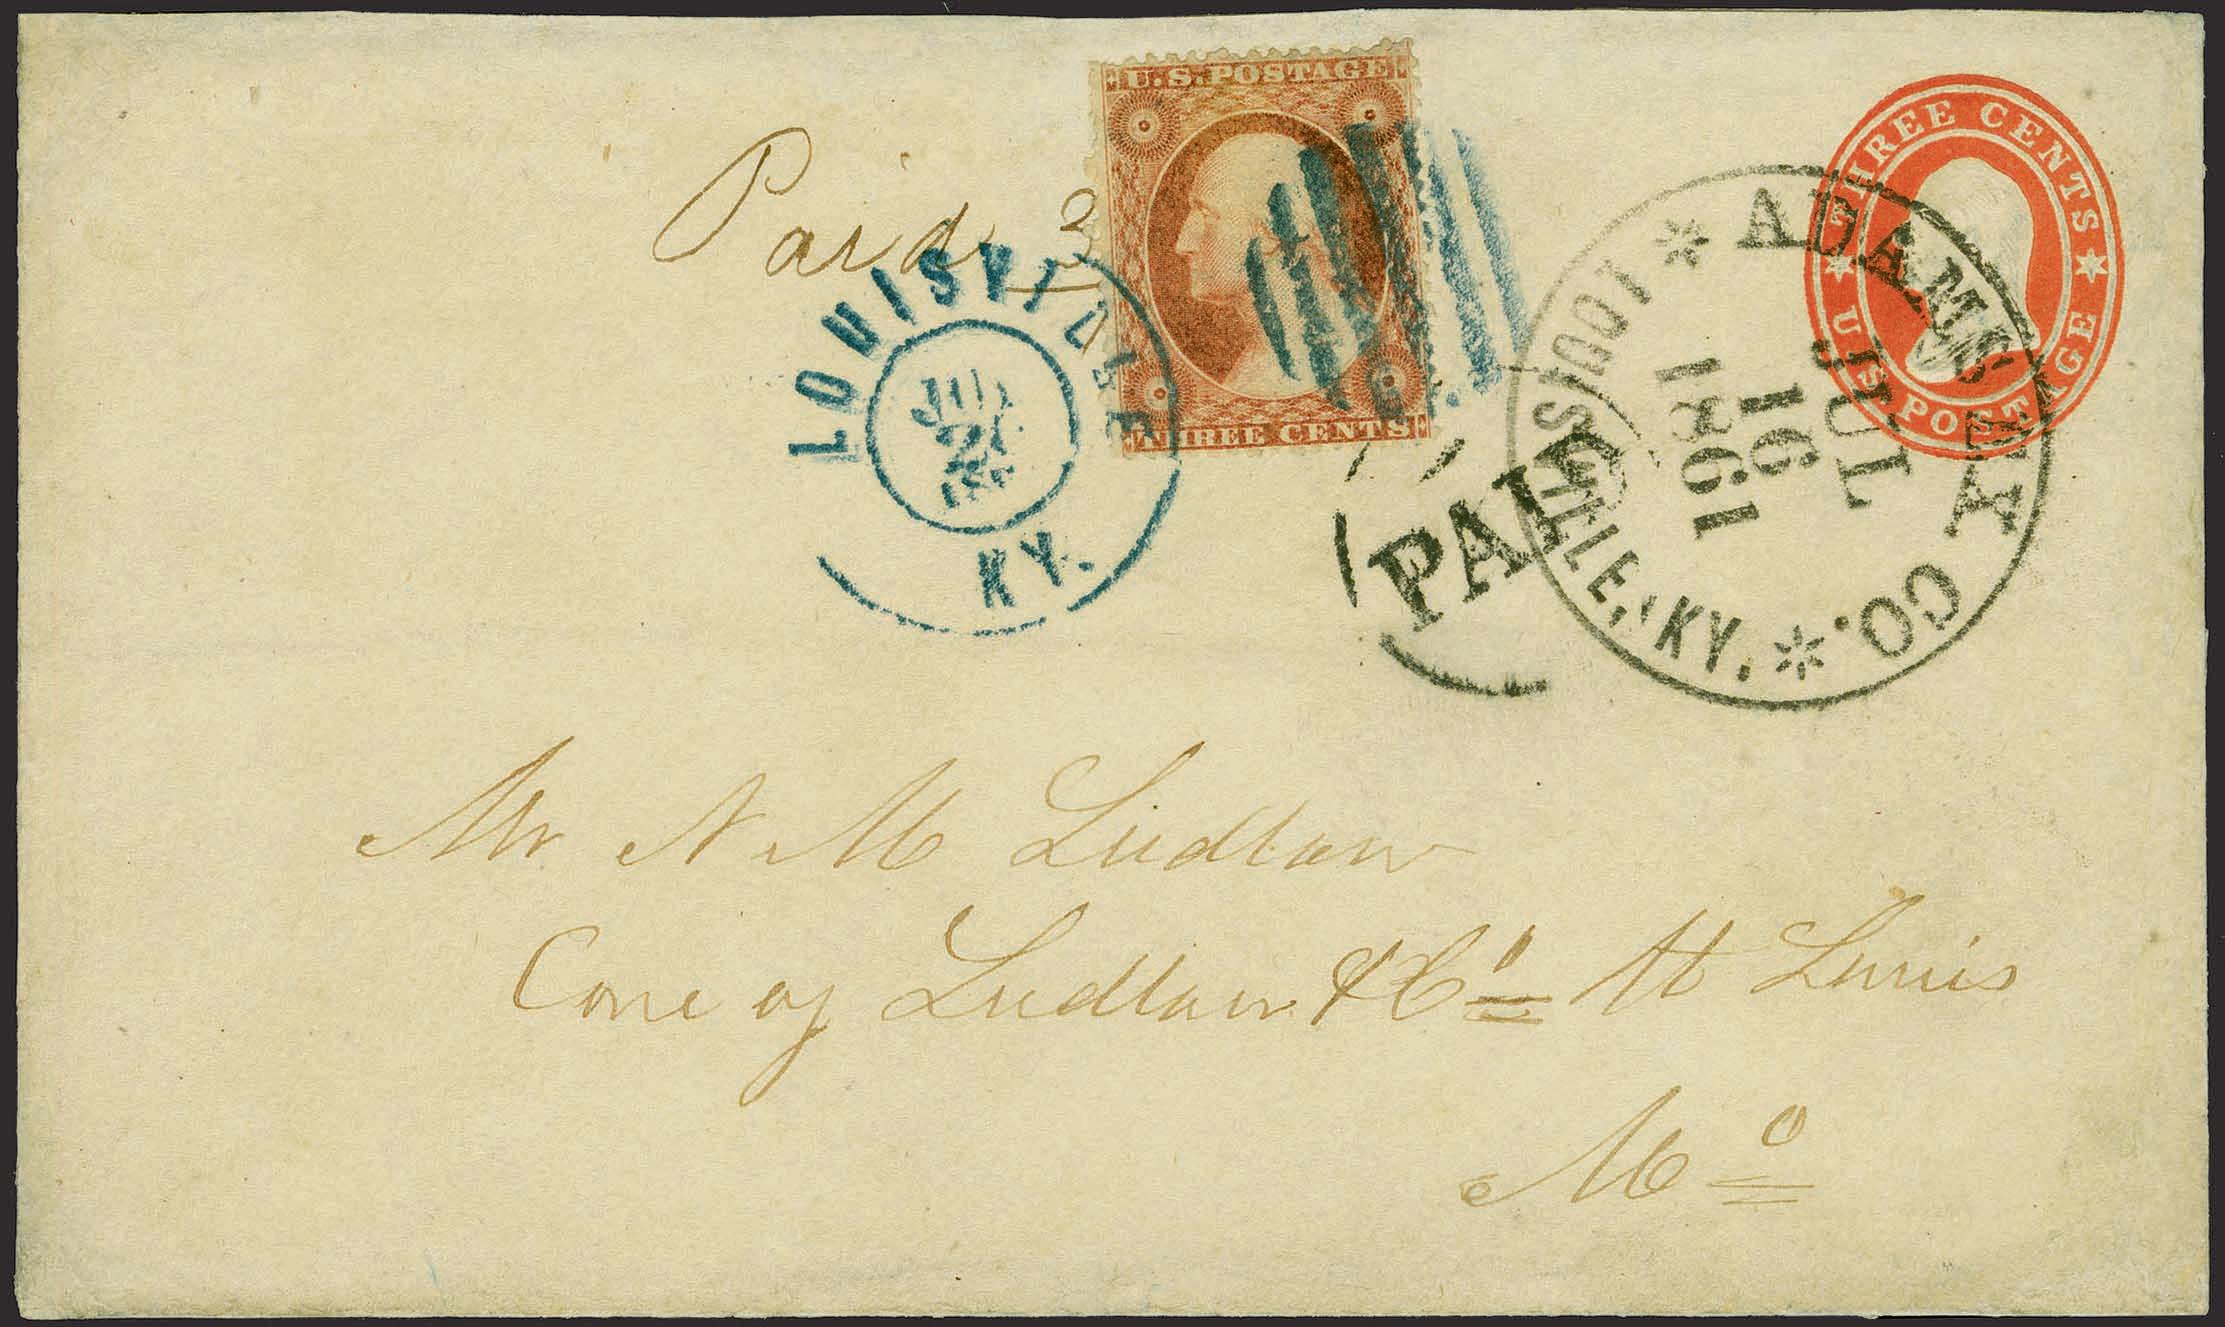 U.S. POSTAGE
THREE CENTS
THREE CENTS
U.S. POSTAGE
Paid 3
LOUISVILLE
KY.
ADAMS EX. CO.
JUL
16
1861
LOUISVILLE, KY.
PAID
Mr N M Ludlow
Care of Ludlow & Co St Louis
Mo